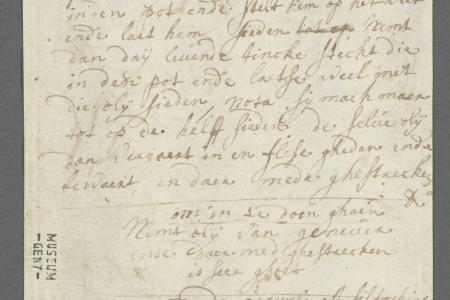 in den pot ende stelt hem op het vier
ende laet hem sieden tot op Nemt
dan drij leuende tincke steckt die
in den pot ende laetse weel met
die olij sieden, Nota sij mach maer
tot op de helft sieden de selue olij
dan in en flese gheden ende
bewaert, en daer mede ghestreecken
om in te doen ghaen
Nemt olij van geneuer
ende daer med ghestreecken
is seer goet
MUSEUM
—GENT—